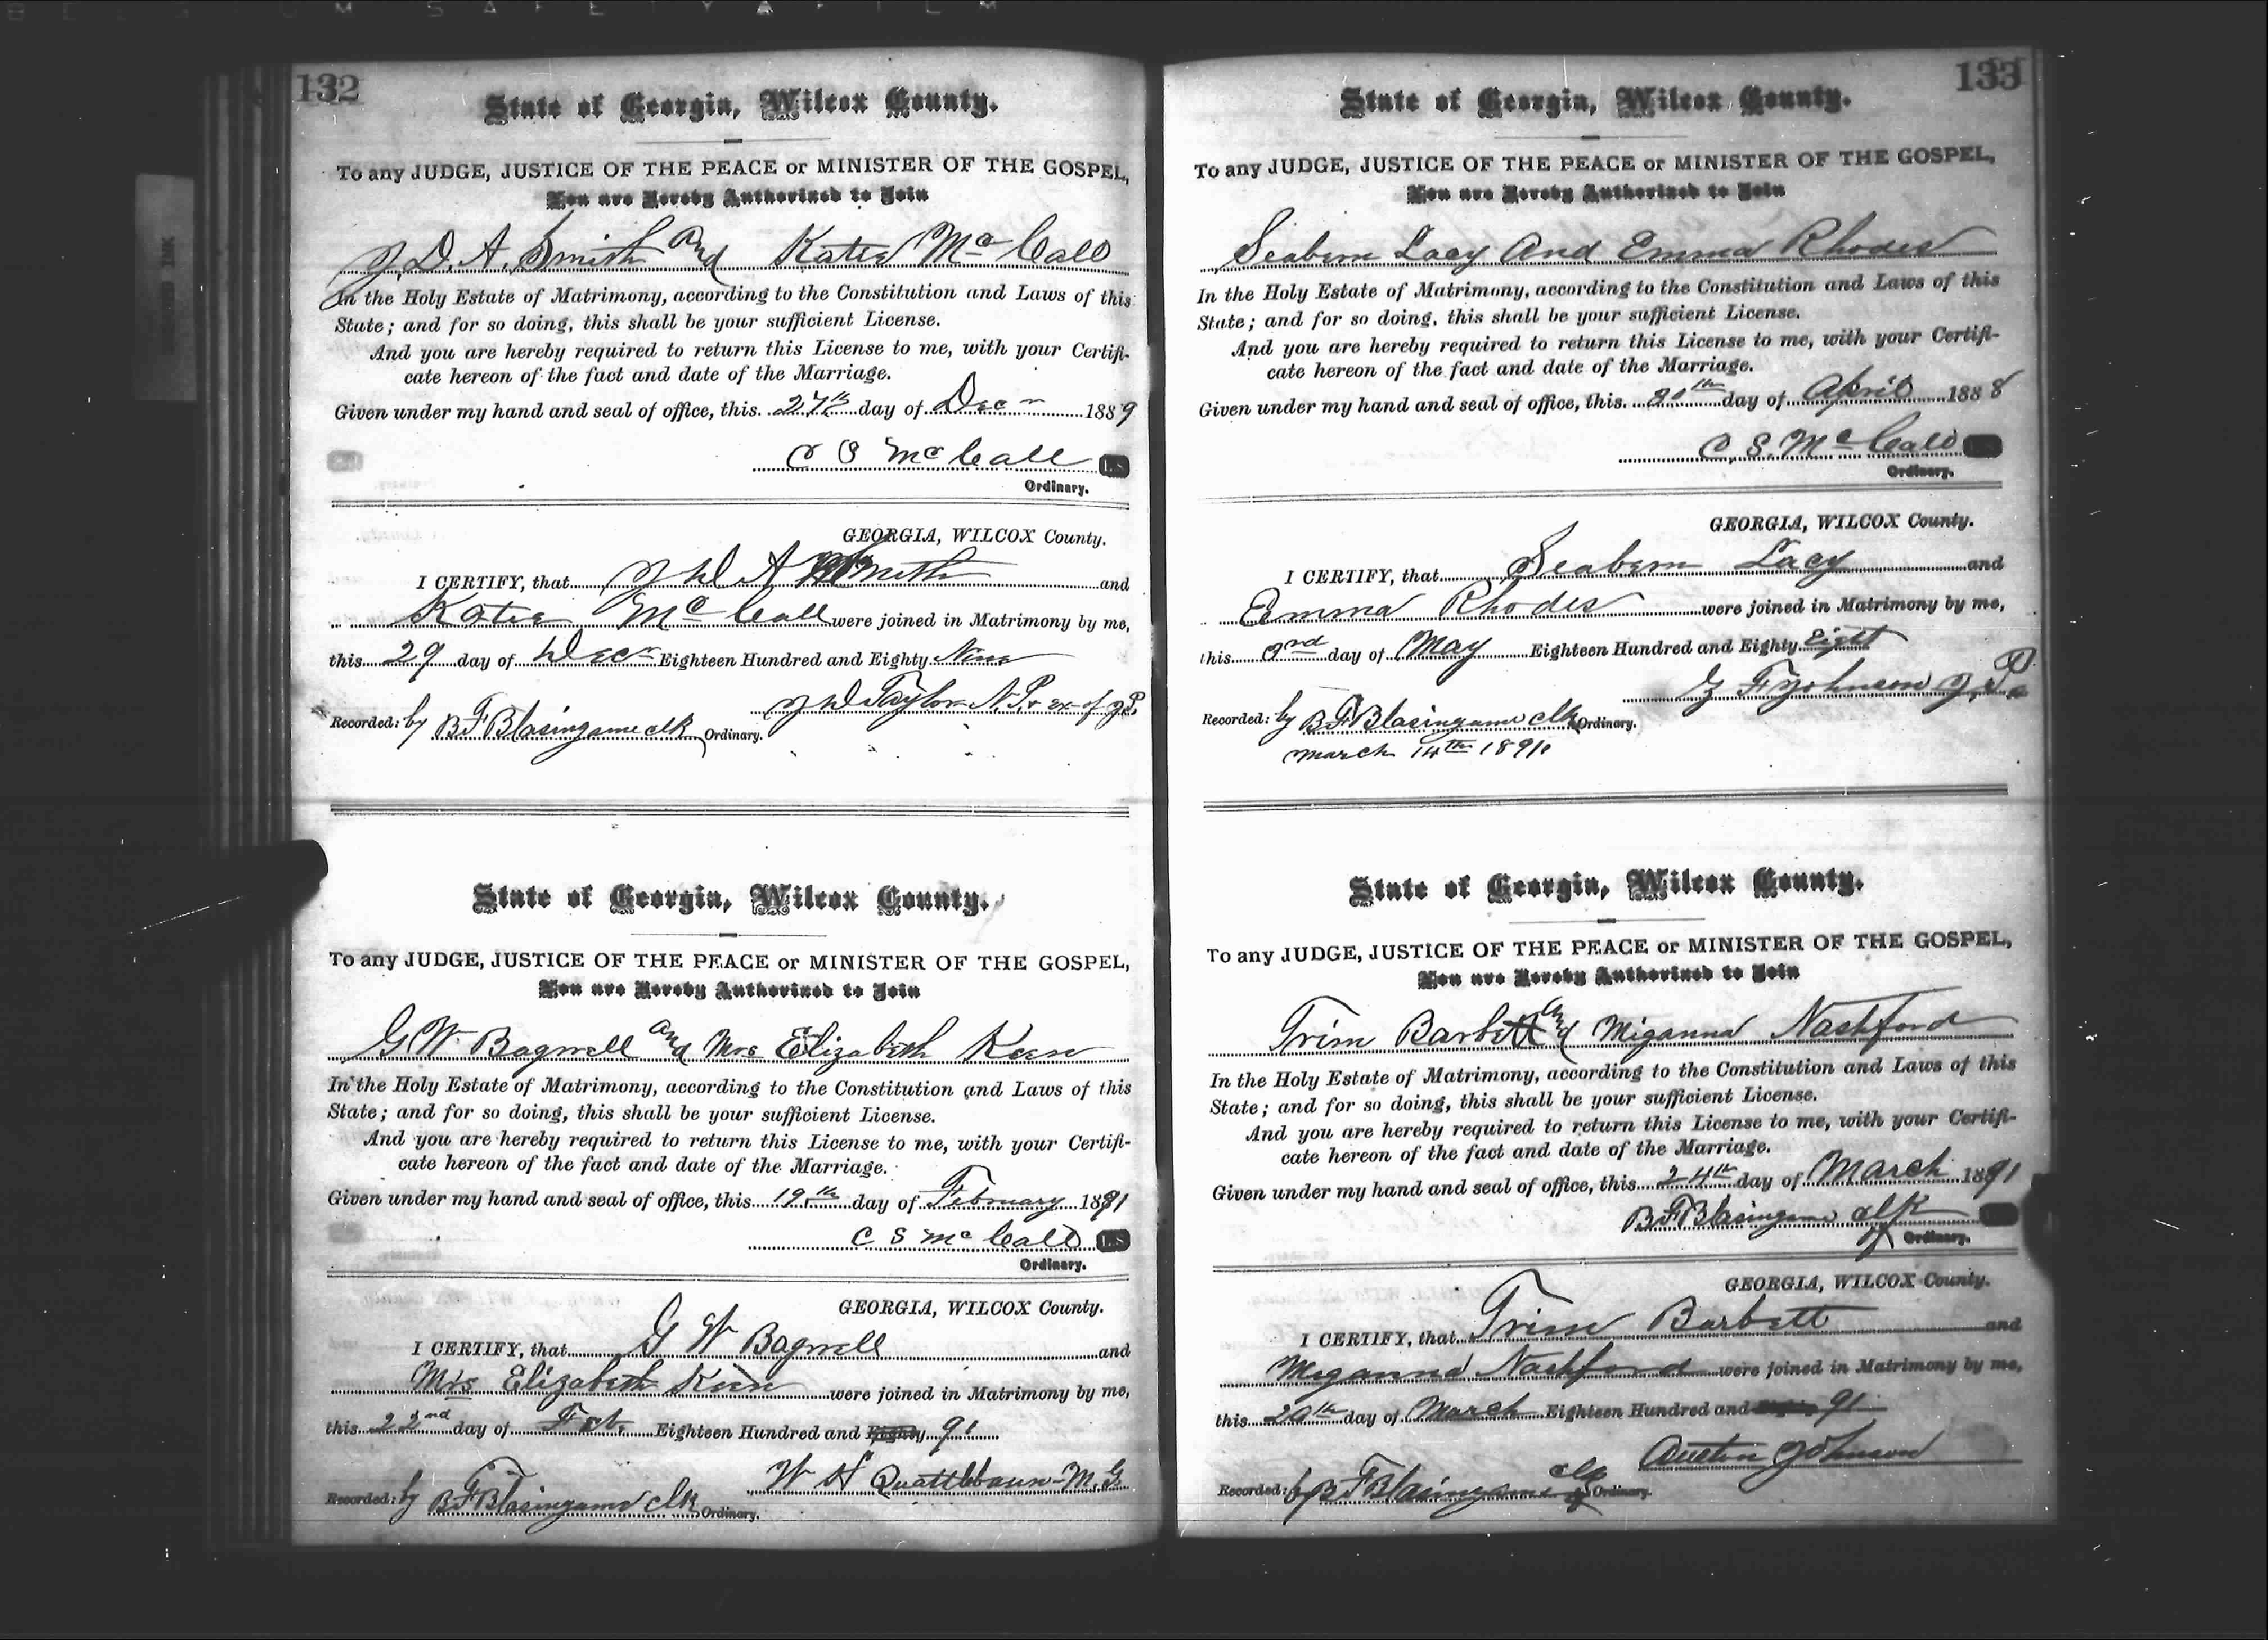 132
State of Georgia, Wilcox County.
To any JUDGE, JUSTICE OF THE PEACE or MINISTER OF THE GOSPEL,
You are Hereby Authorized to Join
J. D. A. Smith and Katie McCall
In the Holy Estate of Matrimony, according to the Constitution and Laws of this
State; and for so doing, this shall be your sufficient License.
And you are hereby required to return this License to me, with your Certifi-
cate hereon of the fact and date of the Marriage.
Given under my hand and seal of office, this 27th day of Dec 1889
C S McCall L.S
Ordinary.
GEORGIA, WILCOX County.
I CERTIFY, that J D A Smith and
Katie McCall were joined in Matrimony by me,
this 29 day of Decr Eighteen Hundred and Eighty Nine
J D Taylor N.P. & ex-of J.P.
Recorded: by B F Blasingame clk Ordinary.
State of Georgia, Wilcox County.
To any JUDGE, JUSTICE OF THE PEACE or MINISTER OF THE GOSPEL,
You are Hereby Authorized to Join
G W Bagwell and Mrs Elizabeth Keen
In the Holy Estate of Matrimony, according to the Constitution and Laws of this
State; and for so doing, this shall be your sufficient License.
And you are hereby required to return this License to me, with your Certifi-
cate hereon of the fact and date of the Marriage.
Given under my hand and seal of office, this 19th day of February 1891
C S McCall L.S
Ordinary.
GEORGIA, WILCOX County.
I CERTIFY, that G W Bagwell and
Mrs Elizabeth Keen were joined in Matrimony by me,
this 22nd day of Feb. Eighteen Hundred and Eighty 91
W H Quattlebaum M.G.
Recorded: by B F Blasingame clk Ordinary.
133
State of Georgia, Wilcox County.
To any JUDGE, JUSTICE OF THE PEACE or MINISTER OF THE GOSPEL,
You are Hereby Authorized to Join
Seabern Lacy And Emma Rhodes
In the Holy Estate of Matrimony, according to the Constitution and Laws of this
State; and for so doing, this shall be your sufficient License.
And you are hereby required to return this License to me, with your Certifi-
cate hereon of the fact and date of the Marriage.
Given under my hand and seal of office, this day of April 1888
C. S. McCall
Ordinary.
GEORGIA, WILCOX County.
I CERTIFY, that Seabern Lacy and
Emma Rhodes were joined in Matrimony by me,
this day of May Eighteen Hundred and Eighty Eight
G F Johnson J.P.
Recorded: by B F Blasingame clk Ordinary.
March 14th 1891
State of Georgia, Wilcox County.
To any JUDGE, JUSTICE OF THE PEACE or MINISTER OF THE GOSPEL,
You are Hereby Authorized to Join
Trim Barbett and Miganna Nashford
In the Holy Estate of Matrimony, according to the Constitution and Laws of this
State; and for so doing, this shall be your sufficient License.
And you are hereby required to return this License to me, with your Certifi-
cate hereon of the fact and date of the Marriage.
Given under my hand and seal of office, this 24th day of March 1891
B F Blasingame clk
Ordinary.
GEORGIA, WILCOX County.
I CERTIFY, that Trim Barbett and
Miganna Nashford were joined in Matrimony by me,
this day of March Eighteen Hundred and 91
Austin Johnson
Recorded: by B F Blasingame clk Ordinary.